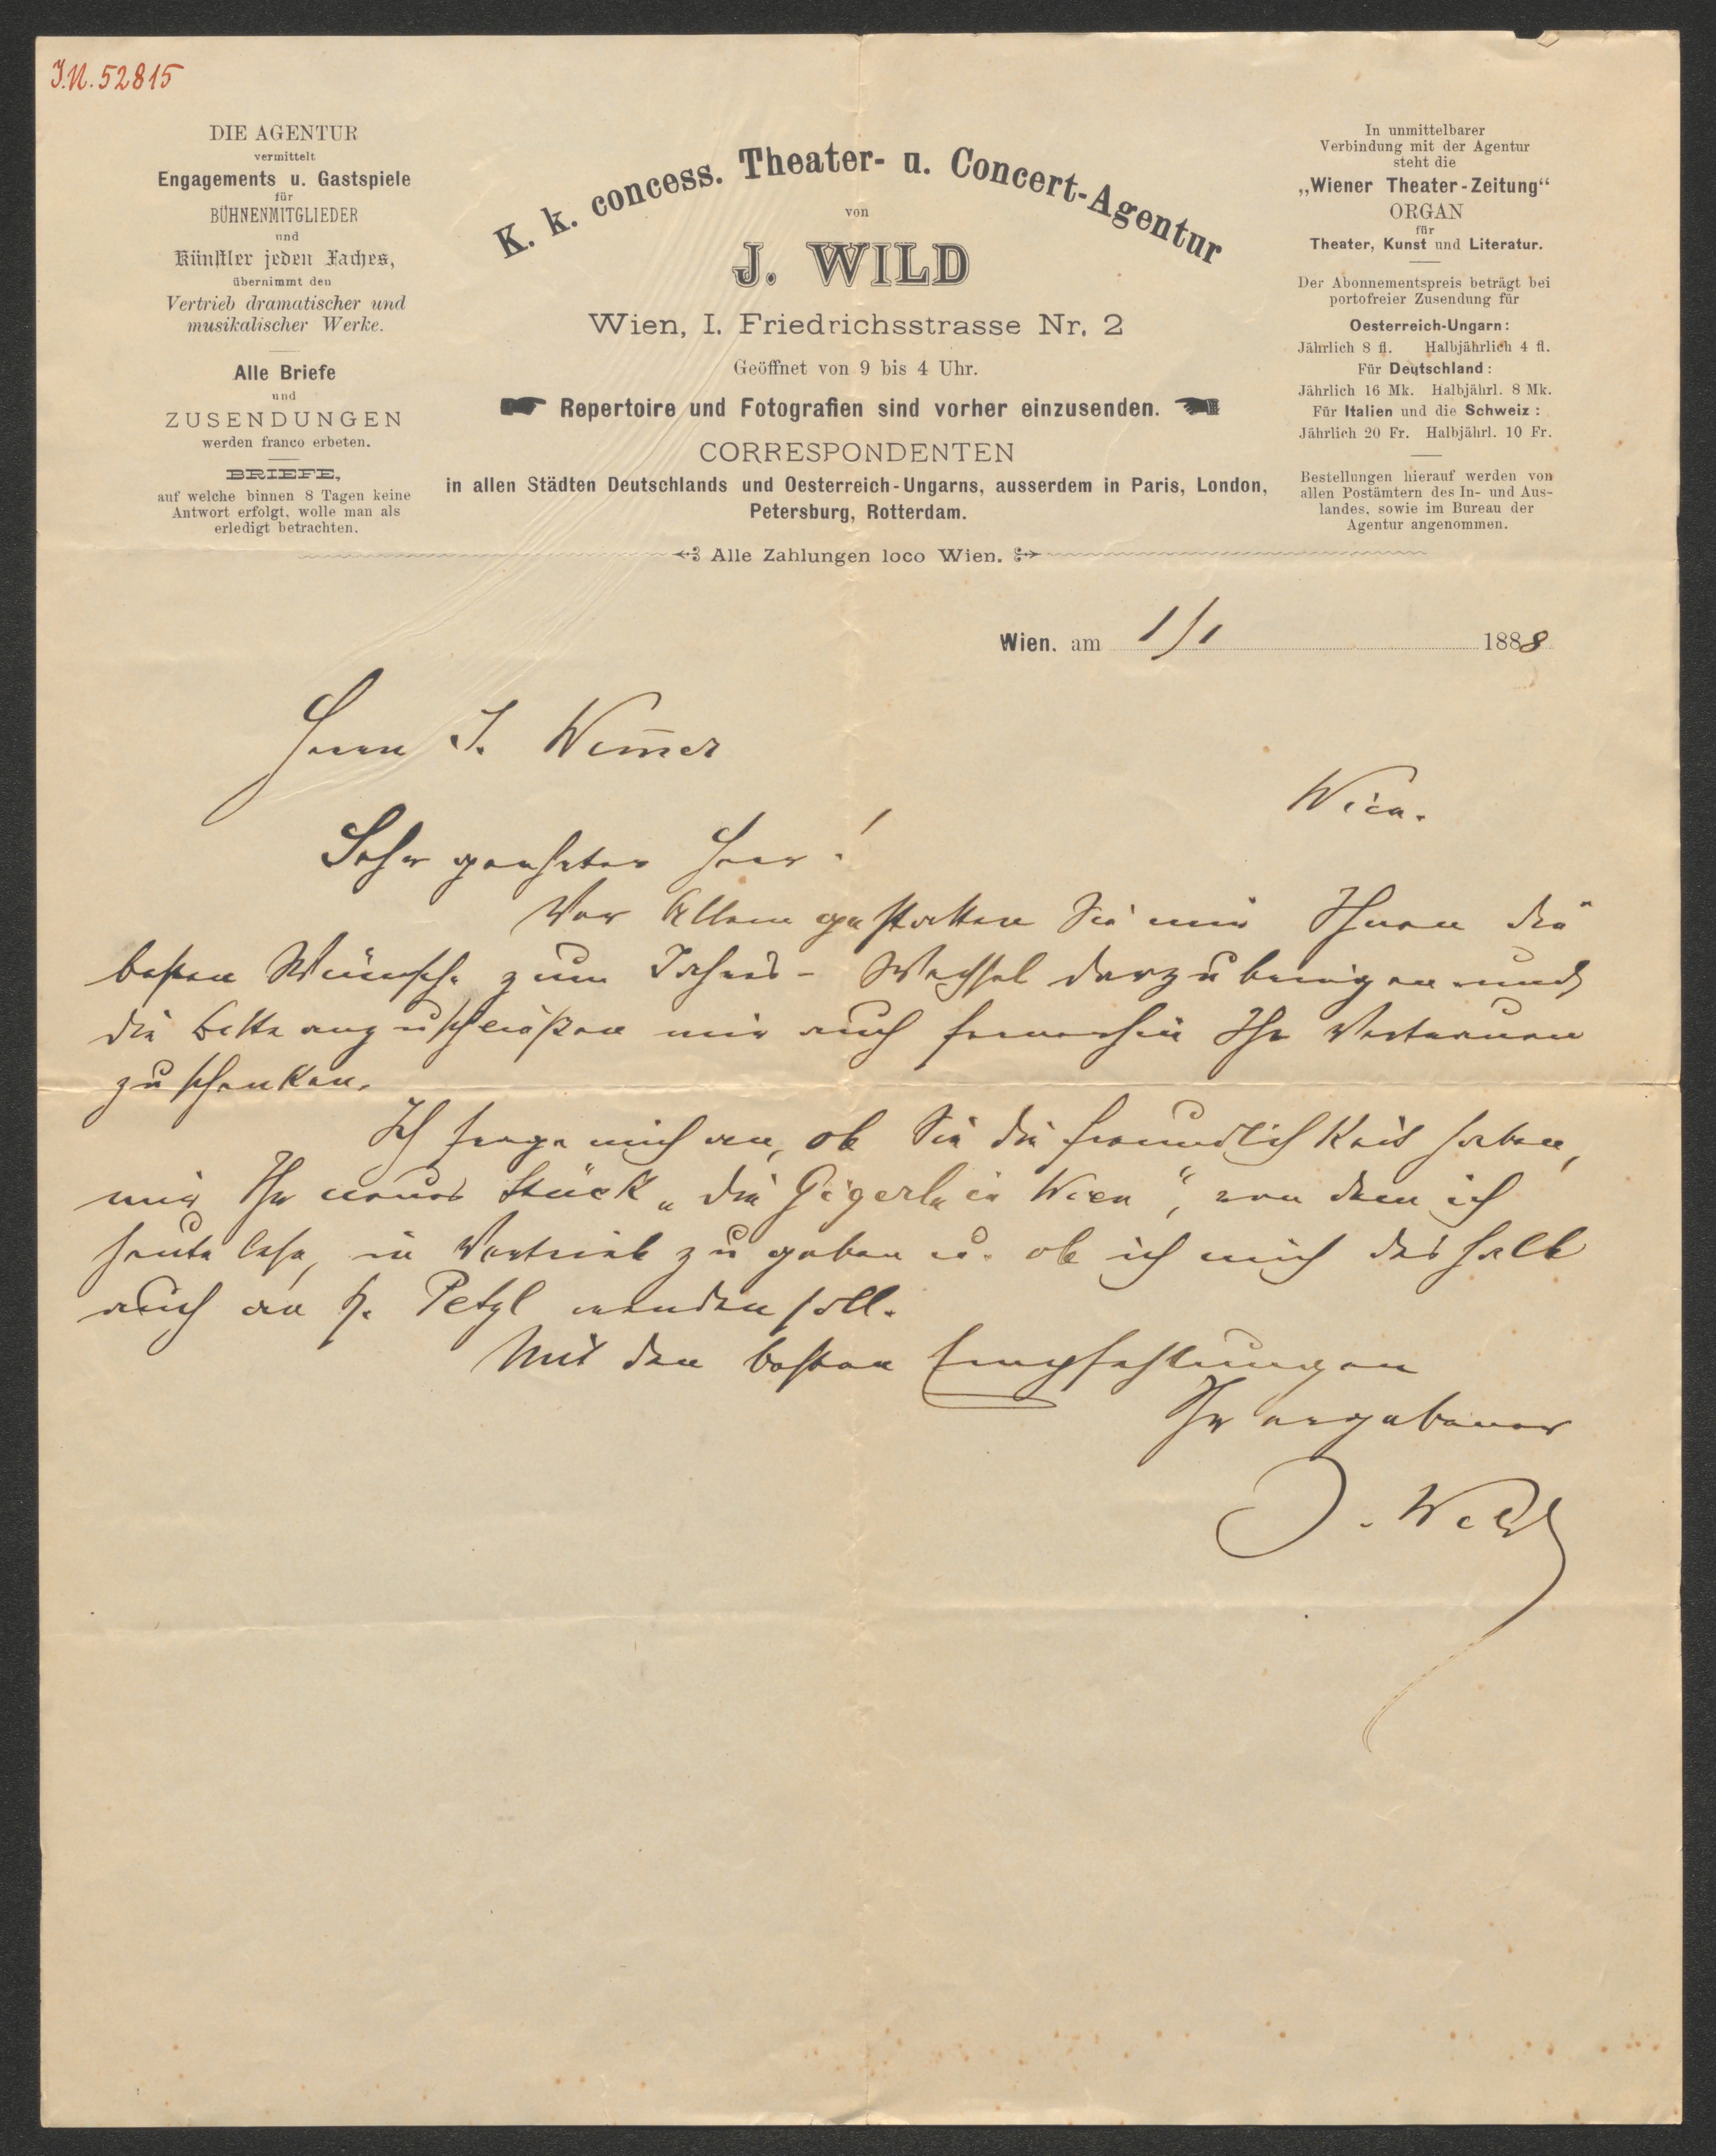 I.N. 52815
DIE AGENTUR
vermittelt
Engagements u. Gastspiele
für
BÜHNENMITGLIEDER
und
Künstler jeden Faches,
übernimmt den
Vertrieb dramatischer und
musikalischer Werke.
Alle Briefe
und
ZUSENDUNGEN
werden franco erbeten.
BRIEFE,
auf welche binnen 8 Tagen keine
Antwort erfolgt, wolle man als
erledigt betrachten.
K. k. concess. Theater- u. Concert-Agentur
von
J. WILD
Wien, I. Friedrichsstrasse Nr. 2
Geöffnet von 9 bis 4 Uhr.
Repertoire und Fotografien sind vorher einzusenden.
CORRESPONDENTEN
in allen Städten Deutschlands und Oesterreich-Ungarns, ausserdem in Paris, London,
Petersburg, Rotterdam.
Alle Zahlungen loco Wien.
In unmittelbarer
Verbindung mit der Agentur
steht die
„Wiener Theater-Zeitung“
ORGAN
für
Theater, Kunst und Literatur.
Der Abonnementspreis beträgt bei
portofreier Zusendung für
Oesterreich-Ungarn:
Jährlich 8 fl. Halbjährlich 4 fl.
Für Deutschland:
Jährlich 16 Mk. Halbjährl. 8 Mk.
Für Italien und die Schweiz:
Jährlich 20 Fr. Halbjährl. 10 Fr.
Bestellungen hierauf werden von
allen Postämtern des In- und Aus-
landes, sowie im Bureau der
Agentur angenommen.
Wien, am 1/1 1888
Herrn J. Wim̄er
Wien.
Sehr geehrter Herr!
Vor Allem gestatten Sie mir Ihnen die
besten Wünsche zum Jahres-Wechsel darzubringen und
die Bitte anzuschließen mir auch fernerhin Ihr Vertrauen
zu schenken.
Ich frage mich an, ob Sie die Freundlichkeit haben,
mir Ihr neues Stück „die Gigerln in Wien“, von dem ich
heute lese, in Vertrieb zu geben u. ob ich mich deshalb
auch an H. Petzl wenden soll.
Mit den besten Empfehlungen
Ihr ergebener
J. Wild